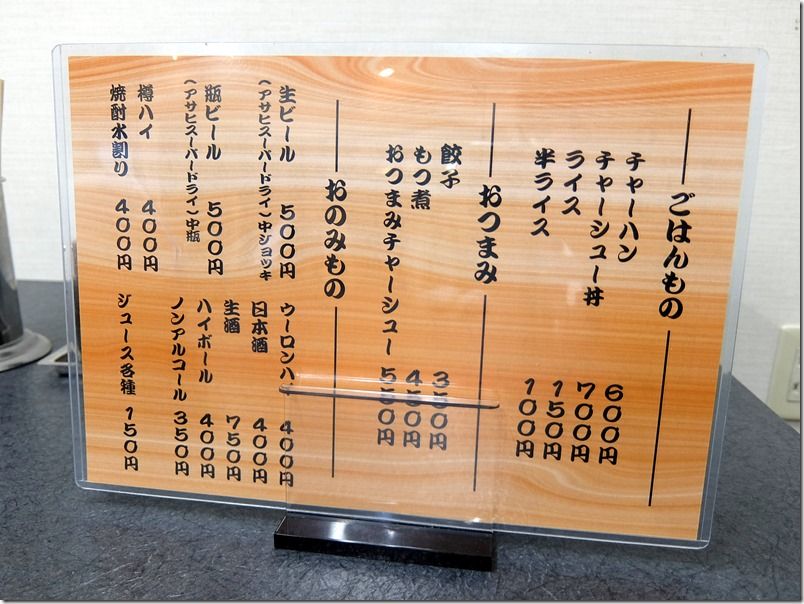 ごはんもの
チャーハン 600円
チャーシュー丼 700円
ライス 150円
半ライス 100円
おつまみ
餃子 350円
もつ煮 450円
おつまみチャーシュー 550円
おのみもの
生ビール 500円
(アサヒスーパードライ)中ジョッキ
瓶ビール 500円
(アサヒスーパードライ)中瓶
樽ハイ 400円
焼酎水割り 400円
ウーロンハ 400円
日本酒 400円
生酒 750円
ハイボール 400円
ノンアルコール 350円
ジュース各種 150円